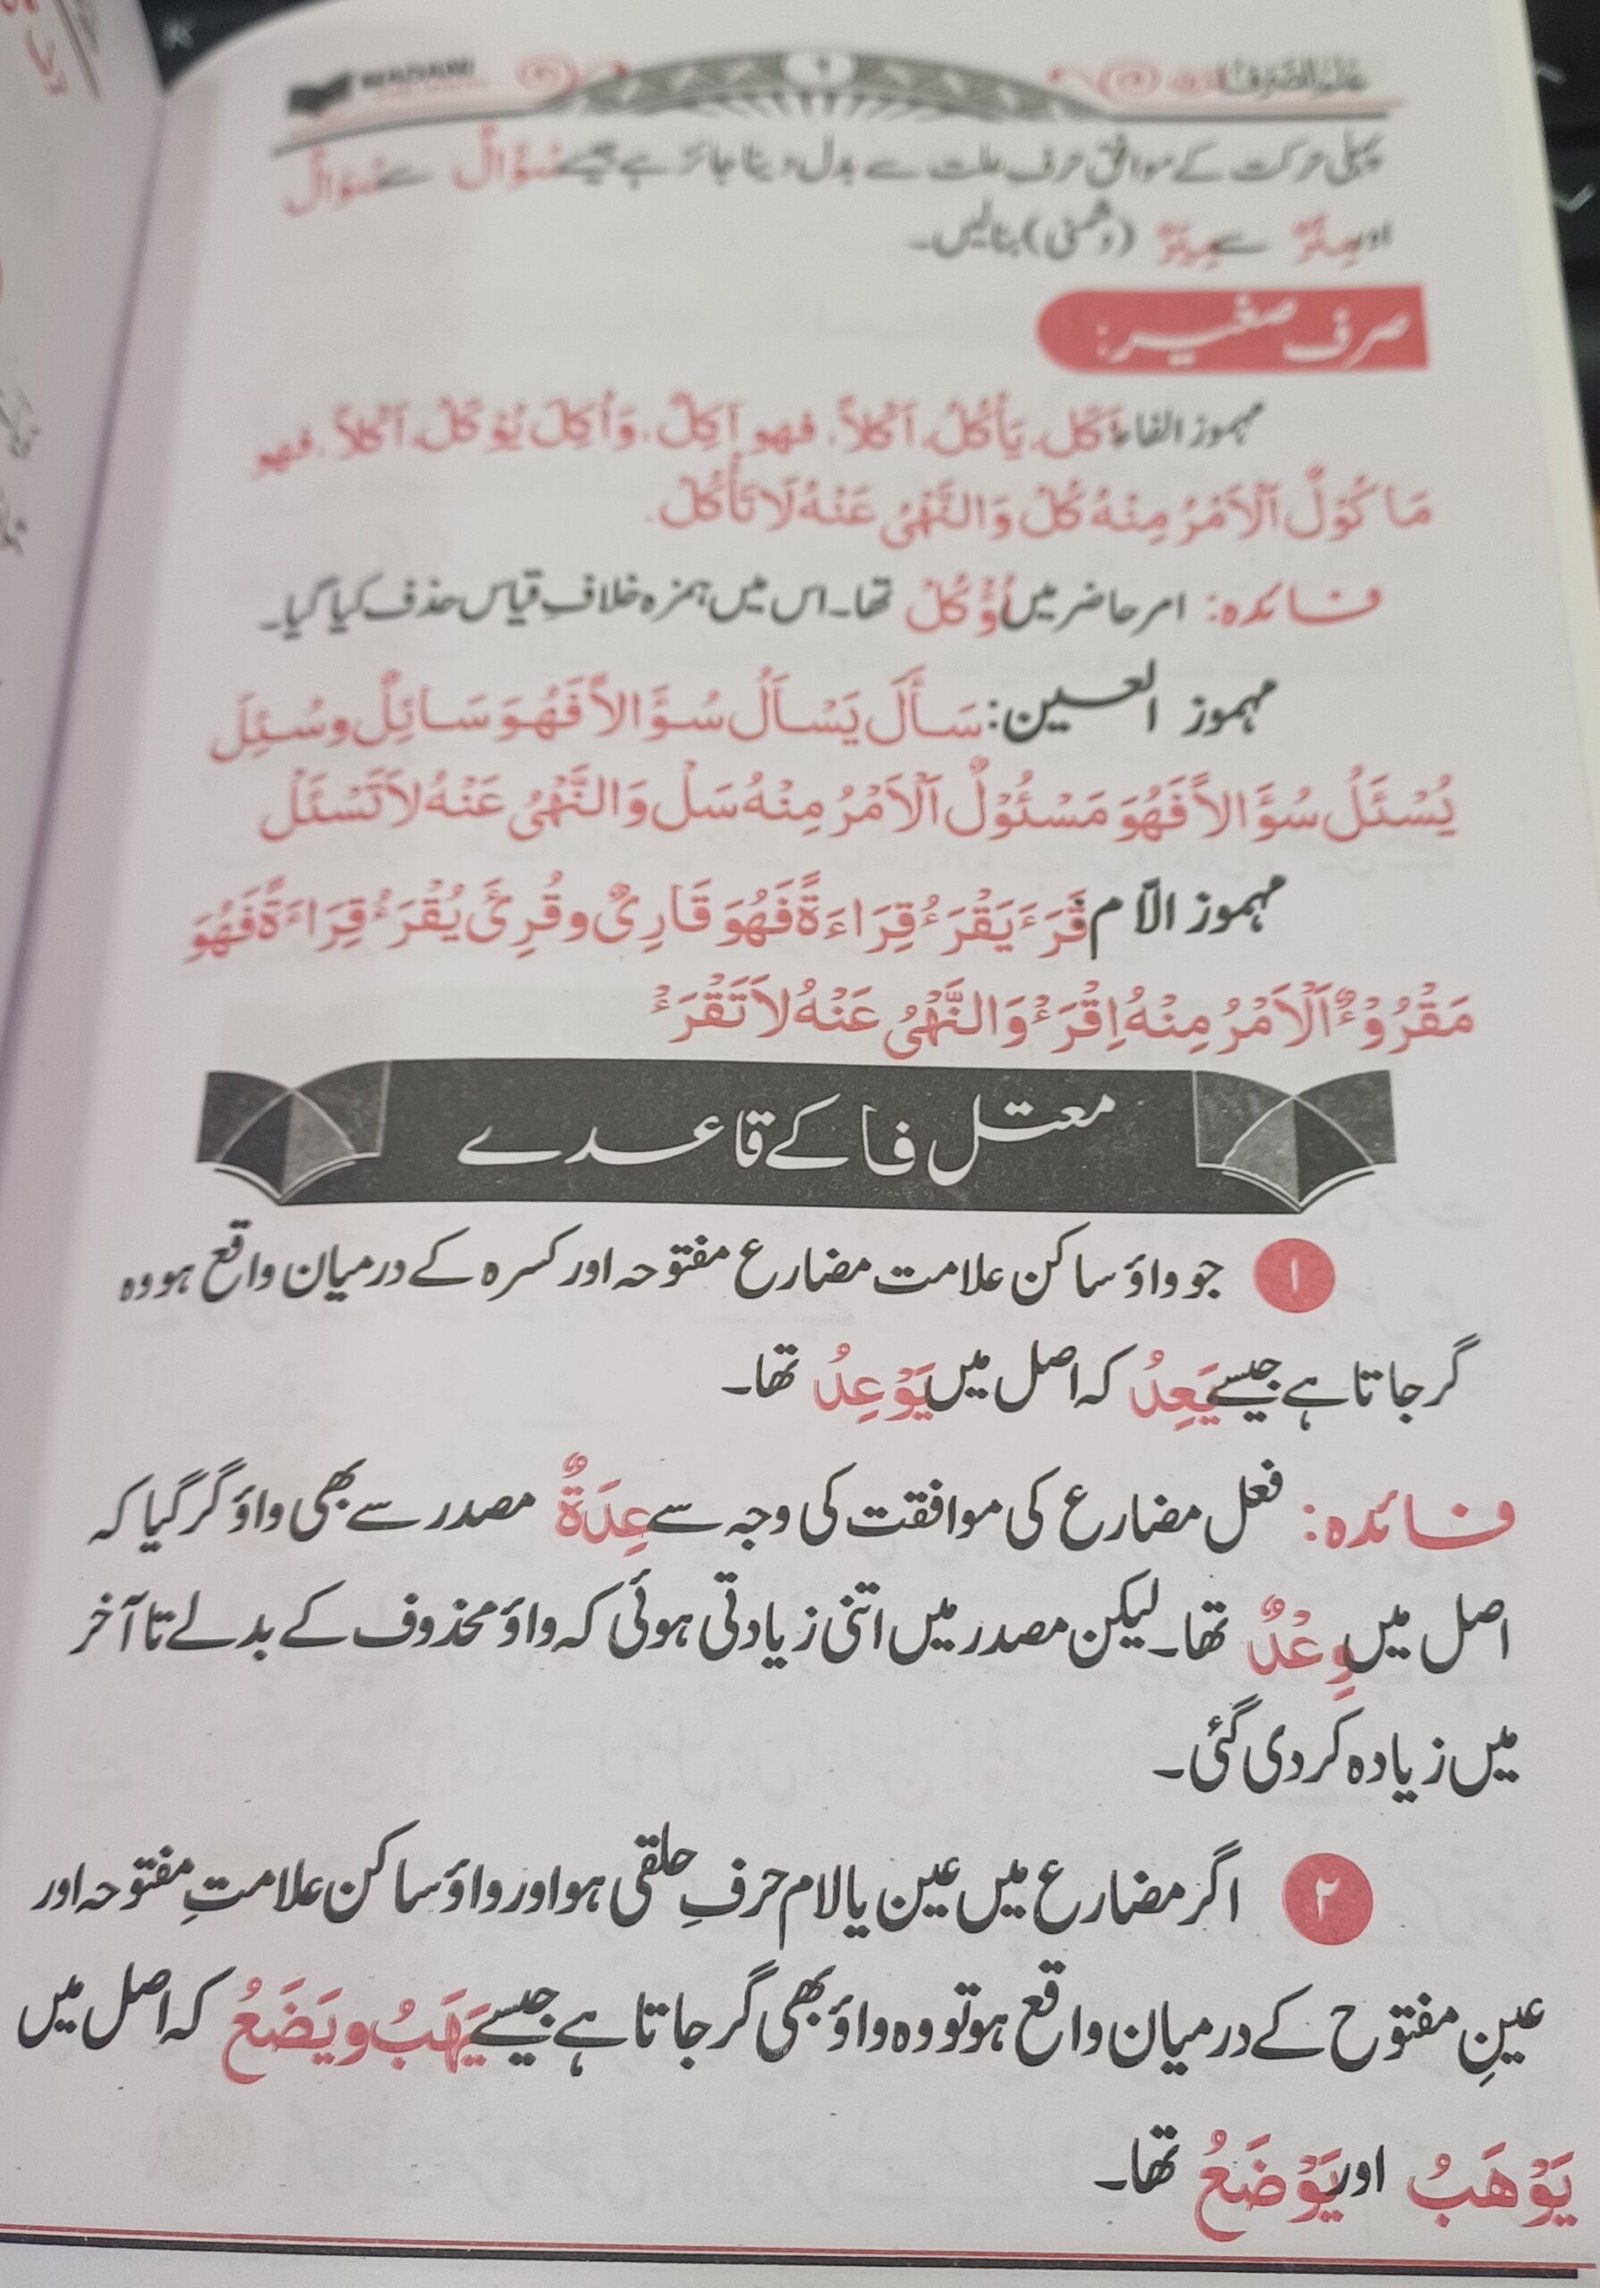 علم الصرف ۹ MADANI
پہلی حرکت کے موافق حرف علت سے بدل دینا جائز ہے جیسے سُؤَالٌ سے سُوَالٌ
اور مِئَرٌ سے مِيَرٌ (دشمنی) بنالیں۔
صرف صغیر:
مہموز الفاء اَكَلَ، يَأْكُلُ، اَكْلاً، فهو آكِلٌ، وَاُكِلَ يُؤْكَلُ، اَكْلاً، فهو
مَاكُوْلٌ اَلْاَمْرُ مِنْهُ كُلْ وَالنَّهْىُ عَنْهُ لَا تَأْكُلْ.
فائدہ: امر حاضر میں اُؤْكُلْ تھا۔ اس میں ہمزہ خلافِ قیاس حذف کیا گیا۔
مہموز العین: سَأَلَ يَسْاَلُ سُؤَالاً فَهُوَ سَائِلٌ وسُئِلَ
يُسْئَلُ سُؤَالاً فَهُوَ مَسْئُوْلٌ اَلْاَمْرُ مِنْهُ سَلْ وَالنَّهْىُ عَنْهُ لاَ تَسْئَلْ
مہموز الاّم قَرَءَ يَقْرَءُ قِرَاءَةً فَهُوَ قَارِىٌ وقُرِئَ يُقْرَءُ قِرَاءَةً فَهُوَ
مَقْرُوْءٌ اَلْاَمْرُ مِنْهُ اِقْرَءْ وَالنَّهْىُ عَنْهُ لاَ تَقْرَءْ
معتل فا کے قاعدے
۱ جو واؤ ساکن علامت مضارع مفتوحہ اور کسرہ کے درمیان واقع ہو وہ
گر جاتا ہے جیسے يَعِدُ کہ اصل میں يَوْعِدُ تھا۔
فائدہ: فعل مضارع کی موافقت کی وجہ سے عِدَةٌ مصدر سے بھی واؤ گر گیا کہ
اصل میں وِعْدٌ تھا۔ لیکن مصدر میں اتنی زیادتی ہوئی کہ واؤ محذوف کے بدلے تا آخر
میں زیادہ کر دی گئی۔
۲ اگر مضارع میں عین یا لام حرفِ حلقی ہو اور واؤ ساکن علامتِ مفتوحہ اور
عینِ مفتوح کے درمیان واقع ہو تو وہ واؤ بھی گر جاتا ہے جیسے يَهَبُ و يَضَعُ کہ اصل میں
يَوْهَبُ اور يَوْضَعُ تھا۔